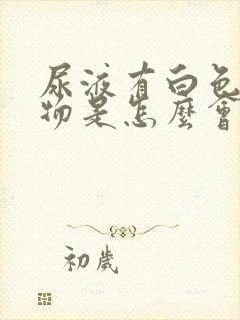 尿液有白色
物是怎麼會
初歲